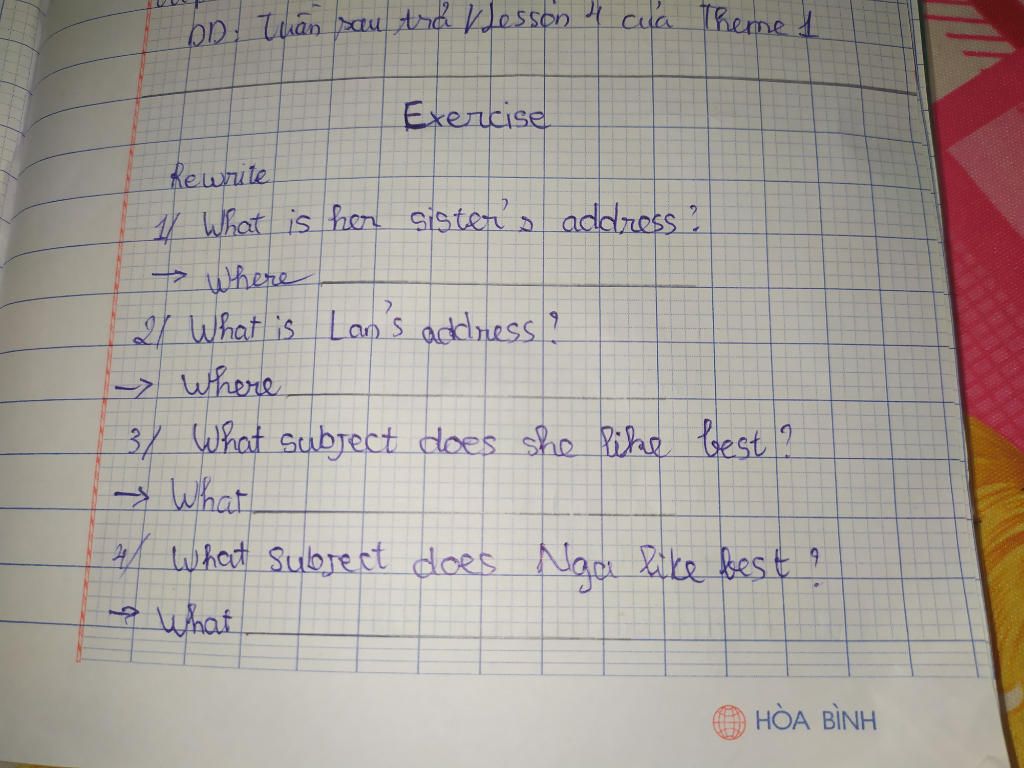 DD: Tuần sau trả V lesson 4 của Theme 1
Exercise
Rewrite
1/ What is her sister's address?
→ Where
2/ What is Lan's address?
→ Where
3/ What subject does she like best?
→ What
4/ What subject does Nga like best?
→ What
HÒA BÌNH